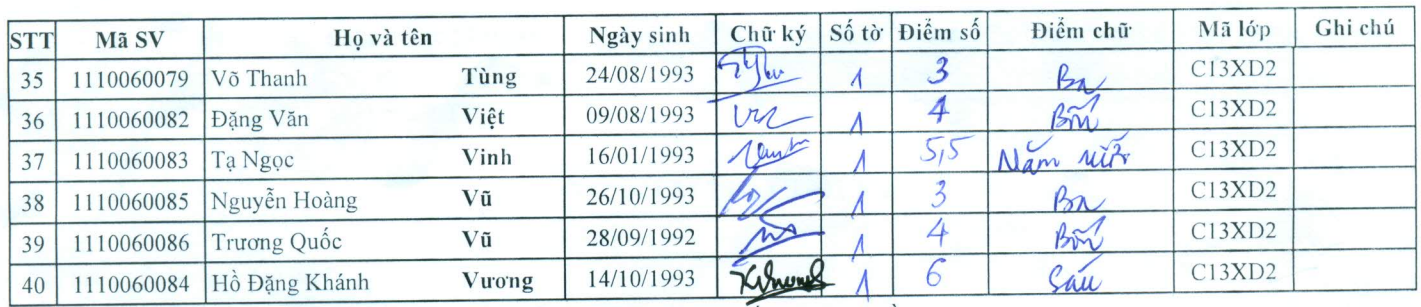 STT Mã SV Họ và tên Ngày sinh Chữ ký Số tờ Điểm số Điểm chữ Mã lớp Ghi chú
35 1110060079 Võ Thanh Tùng 24/08/1993 1 3 Ba C13XD2
36 1110060082 Đặng Văn Việt 09/08/1993 1 4 Bốn C13XD2
37 1110060083 Tạ Ngọc Vinh 16/01/1993 1 5,5 Năm rưỡi C13XD2
38 1110060085 Nguyễn Hoàng Vũ 26/10/1993 1 3 Ba C13XD2
39 1110060086 Trương Quốc Vũ 28/09/1992 1 4 Bốn C13XD2
40 1110060084 Hồ Đặng Khánh Vương 14/10/1993 1 6 Sáu C13XD2